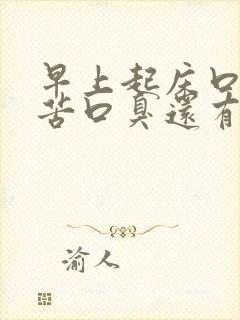 早上起床口
苦口臭還有
渝人